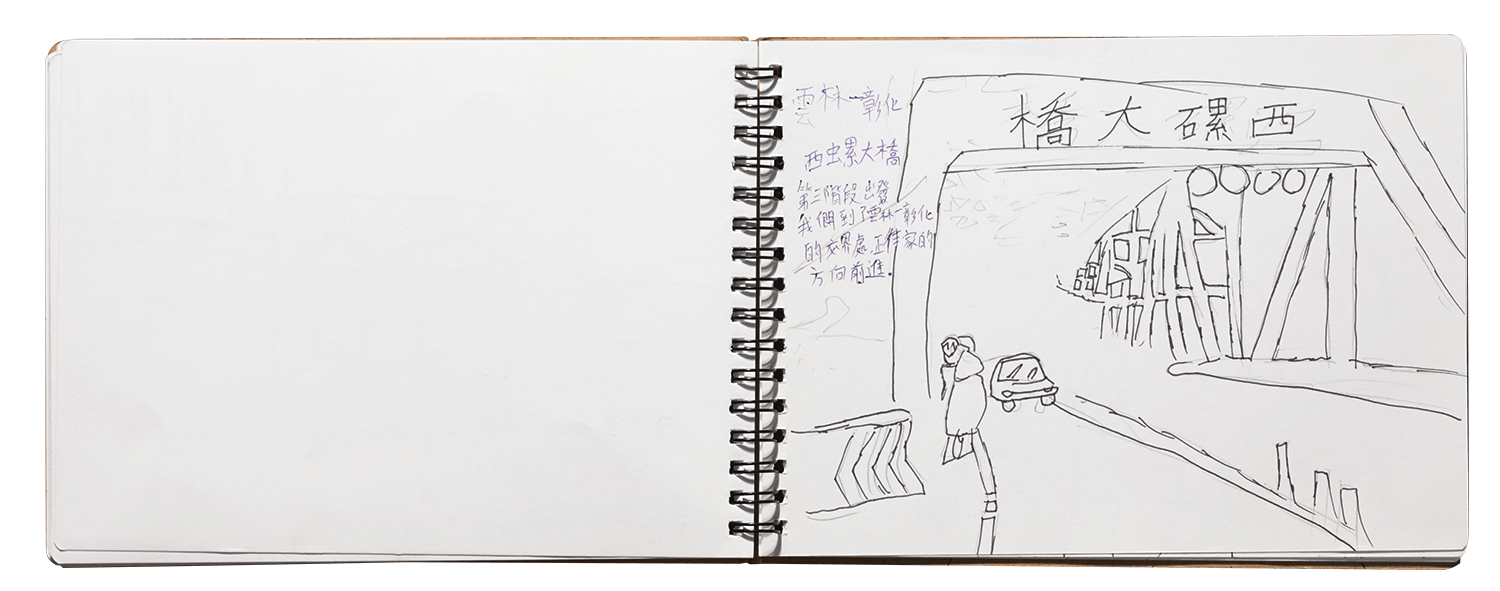 雲林-彰化
西螺大橋
第三階段出發
我們到了雲林-彰化
的交界處,正往家的
方向前進.
西磥大橋